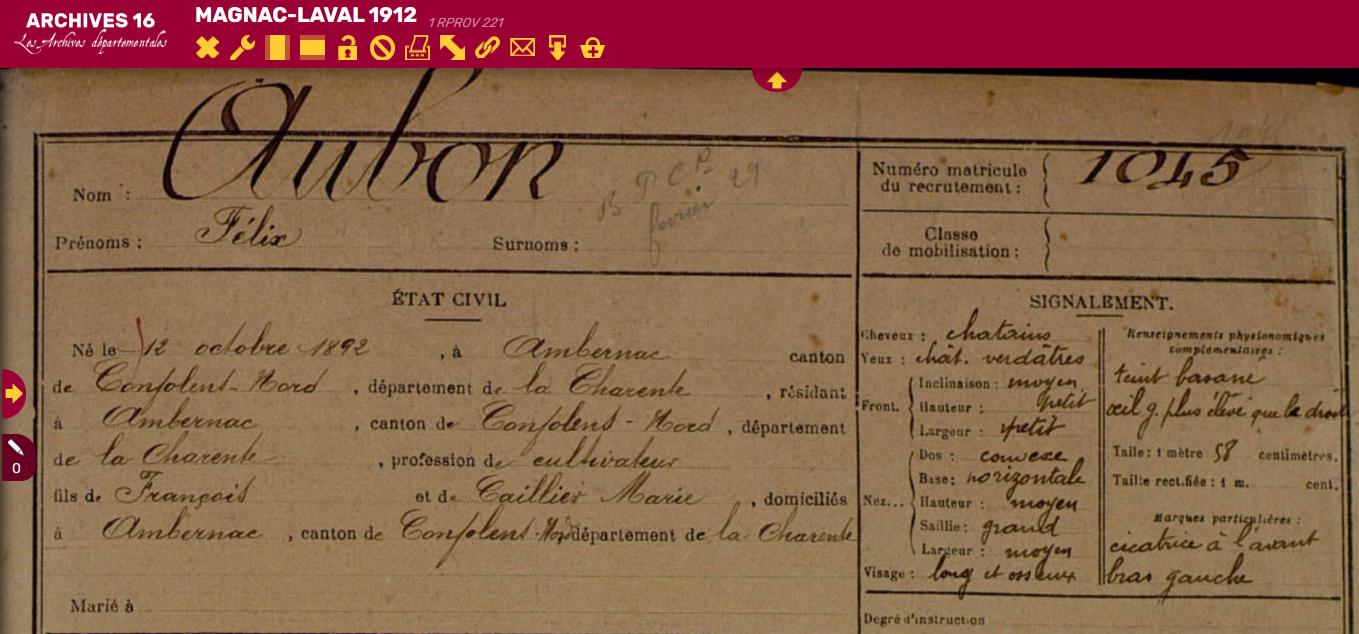 ARCHIVES 16
Les Archives départementales
MAGNAC-LAVAL 1912 1 RPROV 221
0
Nom : Aubon
Prénoms : Félix Surnoms :
février 29
Numéro matricule
du recrutement : 1045
Classe
de mobilisation :
ÉTAT CIVIL
Né le 12 octobre 1892, à Ambernac canton
de Confolens-Nord, département de la Charente, résidant
à Ambernac, canton de Confolens-Nord, département
de la Charente, profession de cultivateur
fils de François et de Caillier Marie, domiciliés
à Ambernac, canton de Confolens-Nord, département de la Charente
Marié à
SIGNALEMENT.
Cheveux : chatains
Yeux : chât. verdâtres
Front.
Inclinaison : moyen
Hauteur : petit
Largeur : petit
Nez...
Dos : convexe
Base : horizontale
Hauteur : moyen
Saillie : grand
Largeur : moyen
Visage : long et osseux
Renseignements physionomiques
complémentaires :
teint basané
œil g. plus élevé que le droit
Taille : 1 mètre 58 centimètres.
Taille rectifiée : 1 m. cent.
Marques particulières :
cicatrice à l'avant
bras gauche
Degré d'instruction